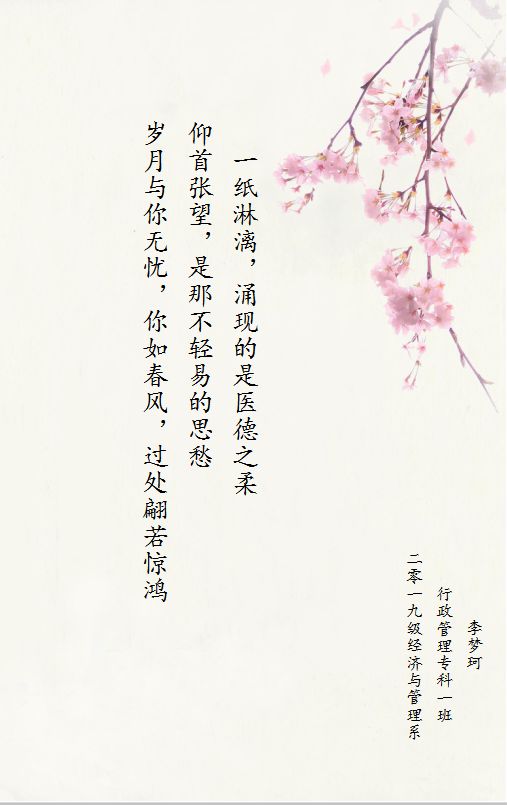 一纸淋漓，涌现的是医德之柔
仰首张望，是那不轻易的思愁
岁月与你无忧，你如春风，过处翩若惊鸿
李梦珂
行政管理专科一班
二零一九级经济与管理系